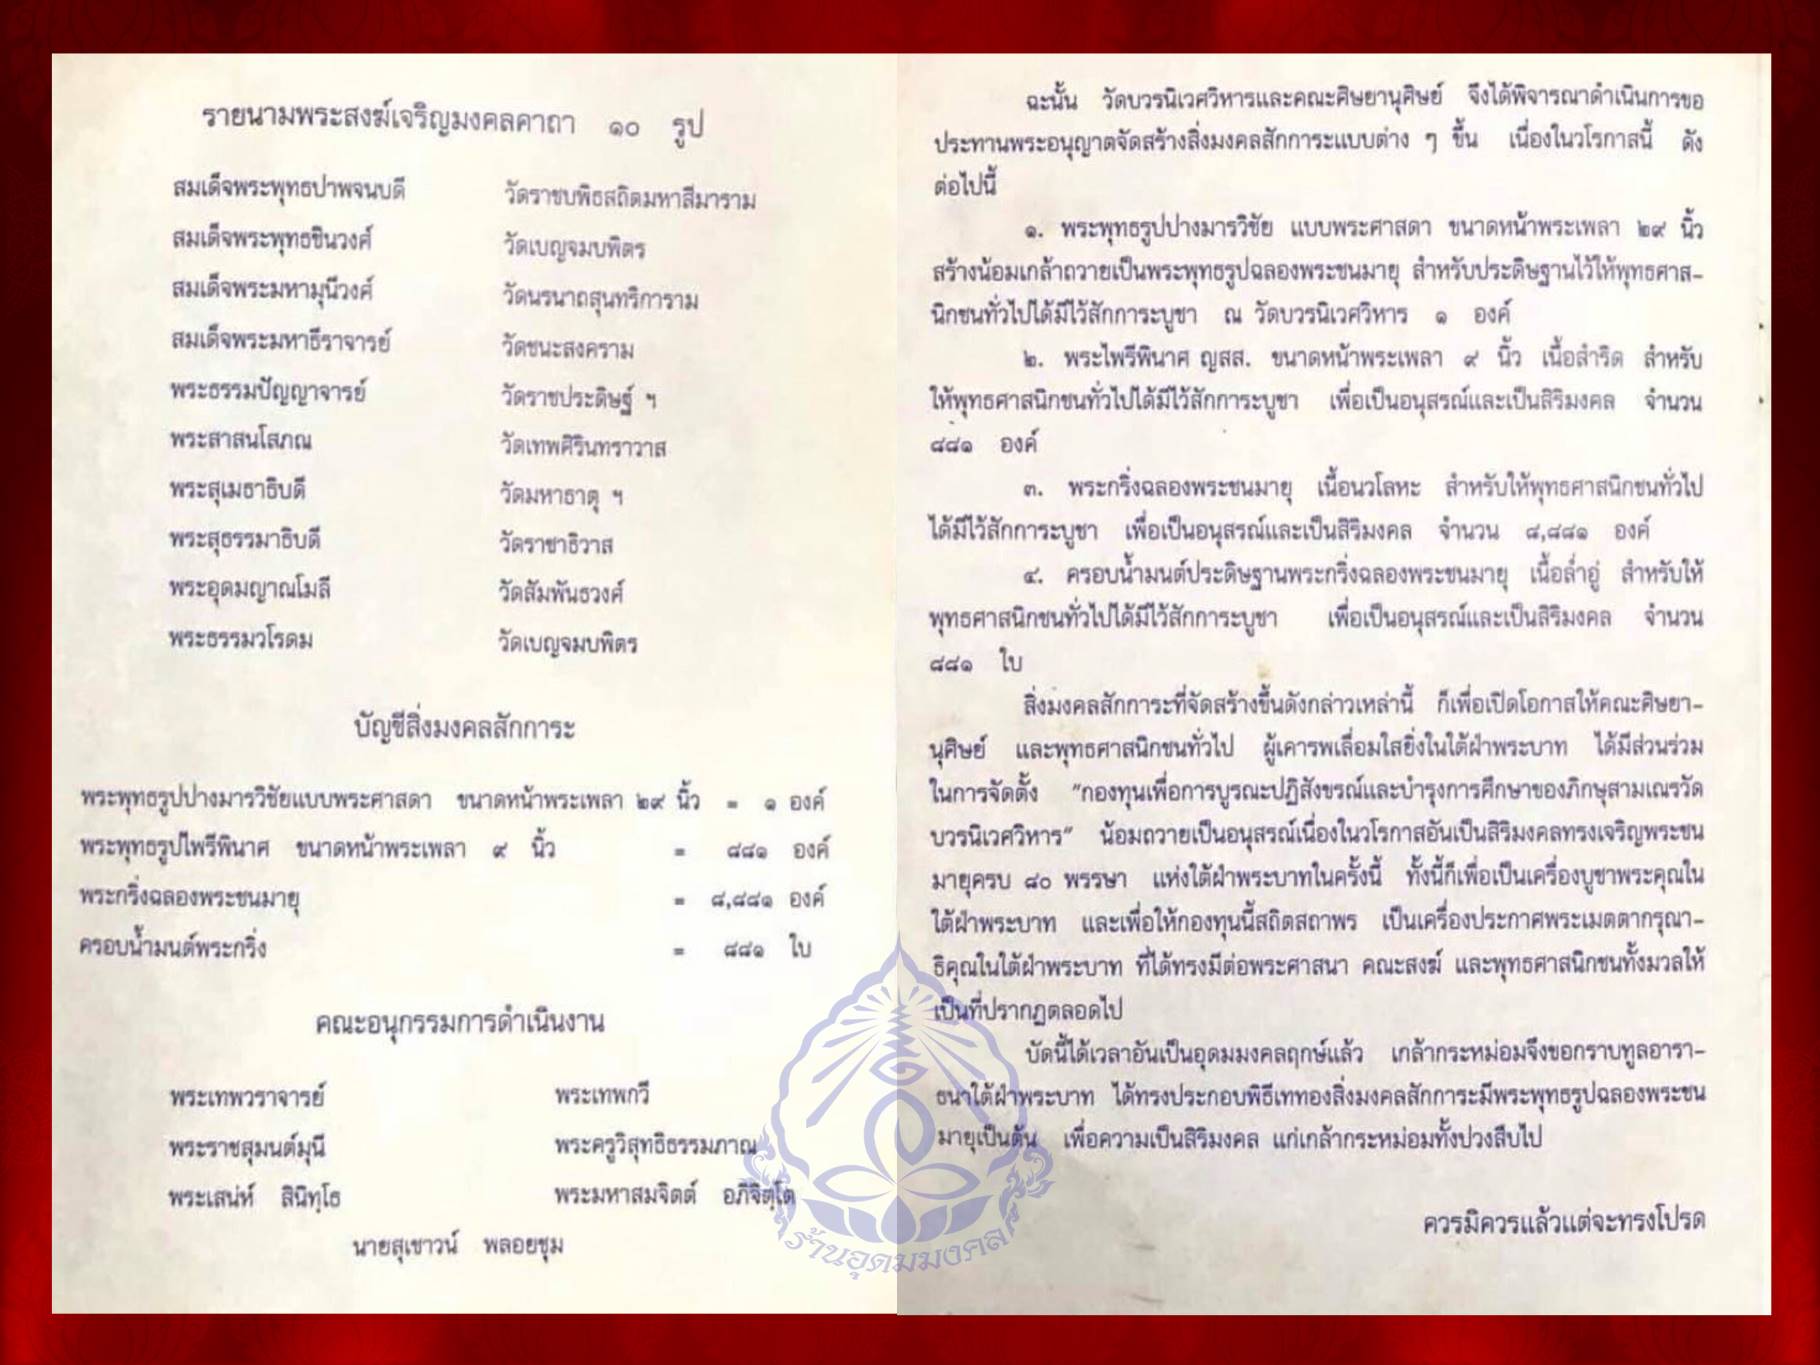 รายนามพระสงฆ์เจริญมงคลคาถา ๑๐ รูป
สมเด็จพระพุทธปาพจนบดี วัดราชบพิธสถิตมหาสีมาราม
สมเด็จพระพุทธชินวงศ์ วัดเบญจมบพิตร
สมเด็จพระมหามุนีวงศ์ วัดนรนาถสุนทริการาม
สมเด็จพระมหาธีราจารย์ วัดชนะสงคราม
พระธรรมปัญญาจารย์ วัดราชประดิษฐ์ ฯ
พระสาสนโสภณ วัดเทพศิรินทราวาส
พระสุเมธาธิบดี วัดมหาธาตุ ฯ
พระสุธรรมาธิบดี วัดราชาธิวาส
พระอุดมญาณโมลี วัดสัมพันธวงศ์
พระธรรมวโรดม วัดเบญจมบพิตร
บัญชีสิ่งมงคลสักการะ
พระพุทธรูปปางมารวิชัยแบบพระศาสดา ขนาดหน้าพระเพลา ๒๙ นิ้ว = ๑ องค์
พระพุทธรูปไพรีพินาศ ขนาดหน้าพระเพลา ๙ นิ้ว = ๘๘๑ องค์
พระกริ่งฉลองพระชนมายุ = ๘,๘๘๑ องค์
ครอบน้ำมนต์พระกริ่ง = ๘๘๑ ใบ
คณะอนุกรรมการดำเนินงาน
พระเทพวราจารย์ พระเทพกวี
พระราชสุมนต์มุนี พระครูวิสุทธิธรรมภาณ
พระเสน่ห์ สินิทฺโธ พระมหาสมจิตต์ อภิจิตฺโต
นายสุเชาวน์ พลอยชุม
ฉะนั้น วัดบวรนิเวศวิหารและคณะศิษยานุศิษย์ จึงได้พิจารณาดำเนินการขอ
ประทานพระอนุญาตจัดสร้างสิ่งมงคลสักการะแบบต่าง ๆ ขึ้น เนื่องในวโรกาสนี้ ดัง
ต่อไปนี้
๑. พระพุทธรูปปางมารวิชัย แบบพระศาสดา ขนาดหน้าพระเพลา ๒๙ นิ้ว
สร้างน้อมเกล้าถวายเป็นพระพุทธรูปฉลองพระชนมายุ สำหรับประดิษฐานไว้ให้พุทธศาส-
นิกชนทั่วไปได้มีไว้สักการะบูชา ณ วัดบวรนิเวศวิหาร ๑ องค์
๒. พระไพรีพินาศ ญสส. ขนาดหน้าพระเพลา ๙ นิ้ว เนื้อสำริด สำหรับ
ให้พุทธศาสนิกชนทั่วไปได้มีไว้สักการะบูชา เพื่อเป็นอนุสรณ์และเป็นสิริมงคล จำนวน
๘๘๑ องค์
๓. พระกริ่งฉลองพระชนมายุ เนื้อนวโลหะ สำหรับให้พุทธศาสนิกชนทั่วไป
ได้มีไว้สักการะบูชา เพื่อเป็นอนุสรณ์และเป็นสิริมงคล จำนวน ๘,๘๘๑ องค์
๔. ครอบน้ำมนต์ประดิษฐานพระกริ่งฉลองพระชนมายุ เนื้อล่ำอู่ สำหรับให้
พุทธศาสนิกชนทั่วไปได้มีไว้สักการะบูชา เพื่อเป็นอนุสรณ์และเป็นสิริมงคล จำนวน
๘๘๑ ใบ
สิ่งมงคลสักการะที่จัดสร้างขึ้นดังกล่าวเหล่านี้ ก็เพื่อเปิดโอกาสให้คณะศิษยา-
นุศิษย์ และพุทธศาสนิกชนทั่วไป ผู้เคารพเลื่อมใสยิ่งในใต้ฝ่าพระบาท ได้มีส่วนร่วม
ในการจัดตั้ง "กองทุนเพื่อการบูรณะปฏิสังขรณ์และบำรุงการศึกษาของภิกษุสามเณรวัด
บวรนิเวศวิหาร" น้อมถวายเป็นอนุสรณ์เนื่องในวโรกาสอันเป็นสิริมงคลทรงเจริญพระชน
มายุครบ ๘๐ พรรษา แห่งใต้ฝ่าพระบาทในครั้งนี้ ทั้งนี้ก็เพื่อเป็นเครื่องบูชาพระคุณใน
ใต้ฝ่าพระบาท และเพื่อให้กองทุนนี้สถิตสถาพร เป็นเครื่องประกาศพระเมตตากรุณา-
ธิคุณในใต้ฝ่าพระบาท ที่ได้ทรงมีต่อพระศาสนา คณะสงฆ์ และพุทธศาสนิกชนทั้งมวลให้
เป็นที่ปรากฏตลอดไป
บัดนี้ได้เวลาอันเป็นอุดมมงคลฤกษ์แล้ว เกล้ากระหม่อมจึงขอกราบทูลอารา-
ธนาใต้ฝ่าพระบาท ได้ทรงประกอบพิธีเททองสิ่งมงคลสักการะมีพระพุทธรูปฉลองพระชน
มายุเป็นต้น เพื่อความเป็นสิริมงคล แก่เกล้ากระหม่อมทั้งปวงสืบไป
ควรมิควรแล้วแต่จะทรงโปรด
ร้านอุดมมงคล